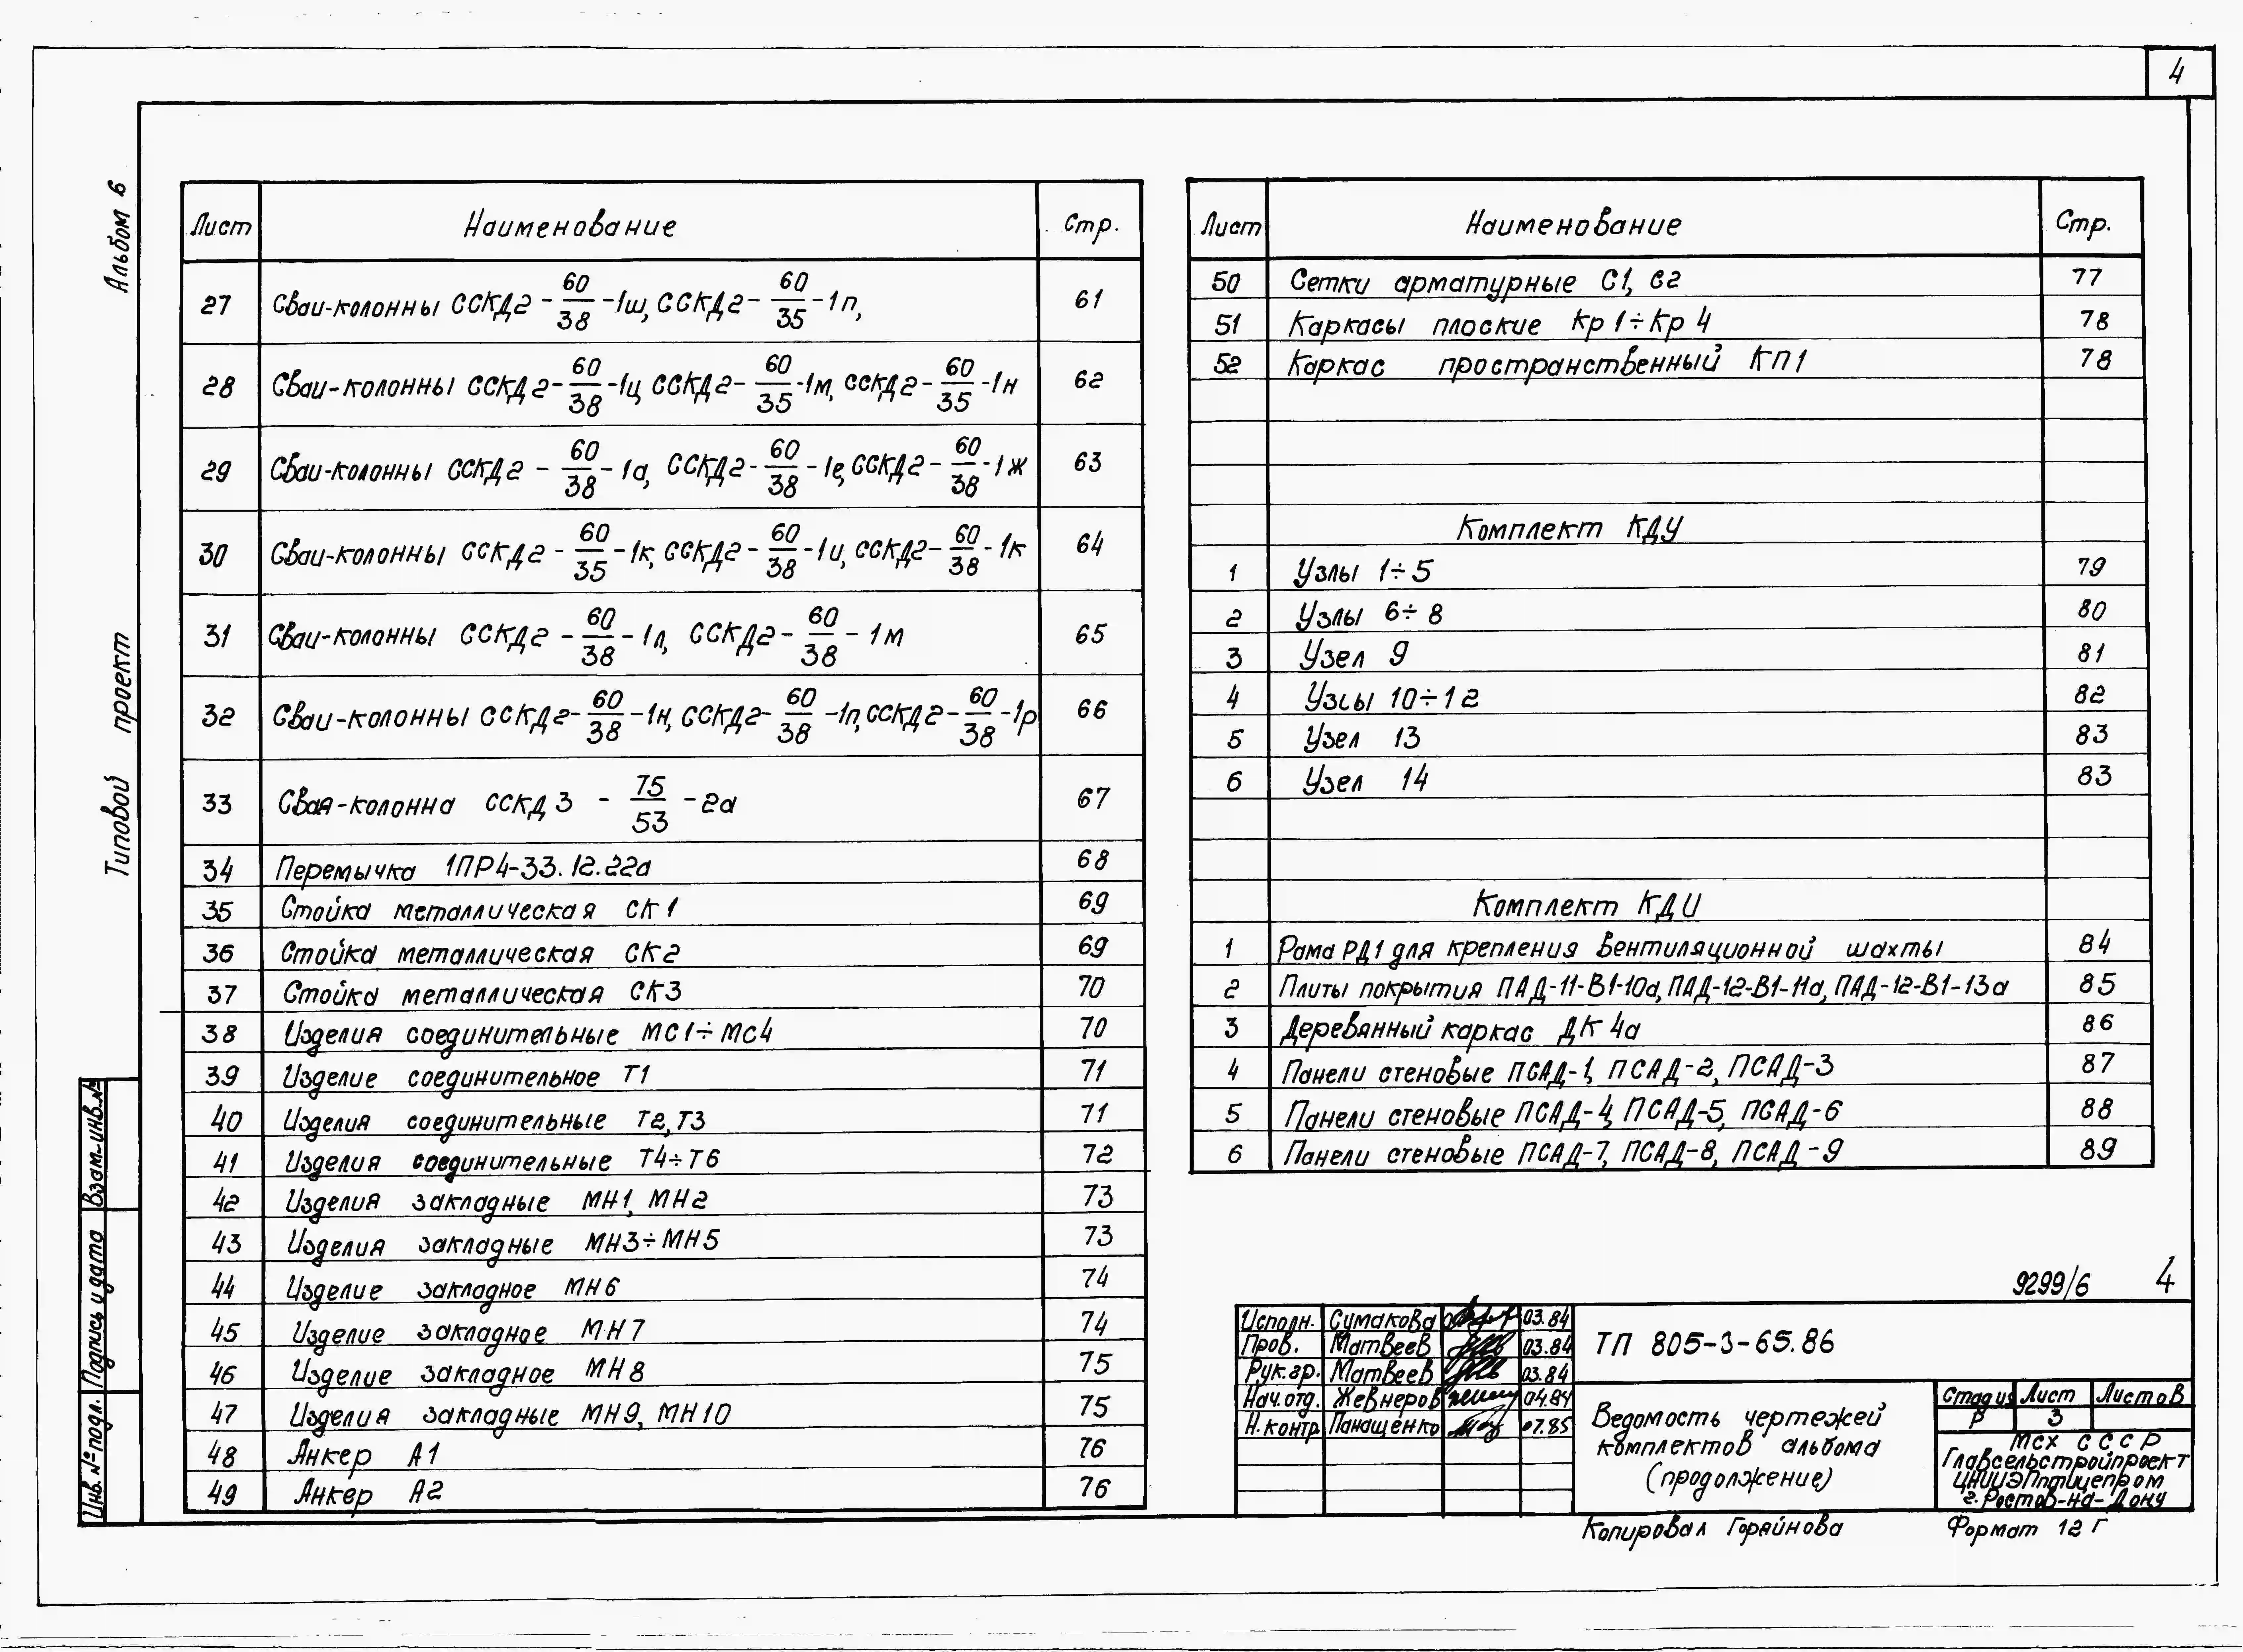 4
Альбом 6
Типовой проект
Взам. инв.№
Подпись и дата
Инв. № подл.
Лист Наименование Стр.
27 Сваи-колонны ССКД2-60/38-1ш, ССКД2-60/35-1п, 61
28 Сваи-колонны ССКД2-60/38-1ц ССКД2-60/35-1м, ССКД2-60/35-1н 62
29 Сваи-колонны ССКД2-60/38-1а, ССКД2-60/38-1е, ССКД2-60/38-1ж 63
30 Сваи-колонны ССКД2-60/35-1к, ССКД2-60/38-1и, ССКД2-60/38-1к 64
31 Сваи-колонны ССКД2-60/38-1л, ССКД2-60/38-1м 65
32 Сваи-колонны ССКД2-60/38-1н, ССКД2-60/38-1п, ССКД2-60/38-1р 66
33 Свая-колонна ССКД3-75/53-2а 67
34 Перемычка 1ПР4-33.12.22а 68
35 Стойка металлическая СК1 69
36 Стойка металлическая СК2 69
37 Стойка металлическая СК3 70
38 Изделия соединительные МС1÷МС4 70
39 Изделие соединительное Т1 71
40 Изделия соединительные Т2, Т3 71
41 Изделия соединительные Т4÷Т6 72
42 Изделия закладные МН1, МН2 73
43 Изделия закладные МН3÷МН5 73
44 Изделие закладное МН6 74
45 Изделие закладное МН7 74
46 Изделие закладное МН8 75
47 Изделия закладные МН9, МН10 75
48 Анкер А1 76
49 Анкер А2 76
Лист Наименование Стр.
50 Сетки арматурные С1, С2 77
51 Каркасы плоские Кр1÷Кр4 78
52 Каркас пространственный КП1 78
Комплект КДУ
1 Узлы 1÷5 79
2 Узлы 6÷8 80
3 Узел 9 81
4 Узлы 10÷12 82
5 Узел 13 83
6 Узел 14 83
Комплект КДИ
1 Рама РД1 для крепления вентиляционной шахты 84
2 Плиты покрытия ПАД-11-В1-10а, ПАД-12-В1-11а, ПАД-12-В1-13а 85
3 Деревянный каркас ДК4а 86
4 Панели стеновые ПСАД-1, ПСАД-2, ПСАД-3 87
5 Панели стеновые ПСАД-4, ПСАД-5, ПСАД-6 88
6 Панели стеновые ПСАД-7, ПСАД-8, ПСАД-9 89
9299/6 4
Исполн. Сумакова 03.84
Пров. Матвеев 03.84
Рук.гр. Матвеев 03.84
Нач.отд. Жевнеров 04.84
Н.контр. Панащенко 07.85
ТП 805-3-65.86
Ведомость чертежей
комплектов альбома
(продолжение)
Стадия Лист Листов
Р 3
МСХ СССР
Главсельстройпроект
ЦНИИЭПптицепром
г.Ростов-на-Дону
Копировал Горяйнова Формат 12Г